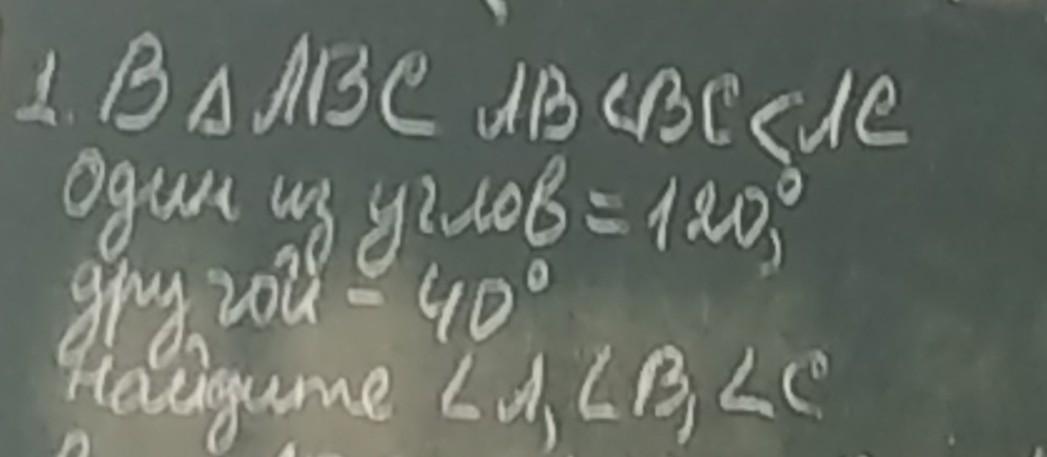 1. В △ ABC AB < BC < AC
Один из углов = 120°,
другой - 40°
Найдите ∠A, ∠B, ∠C